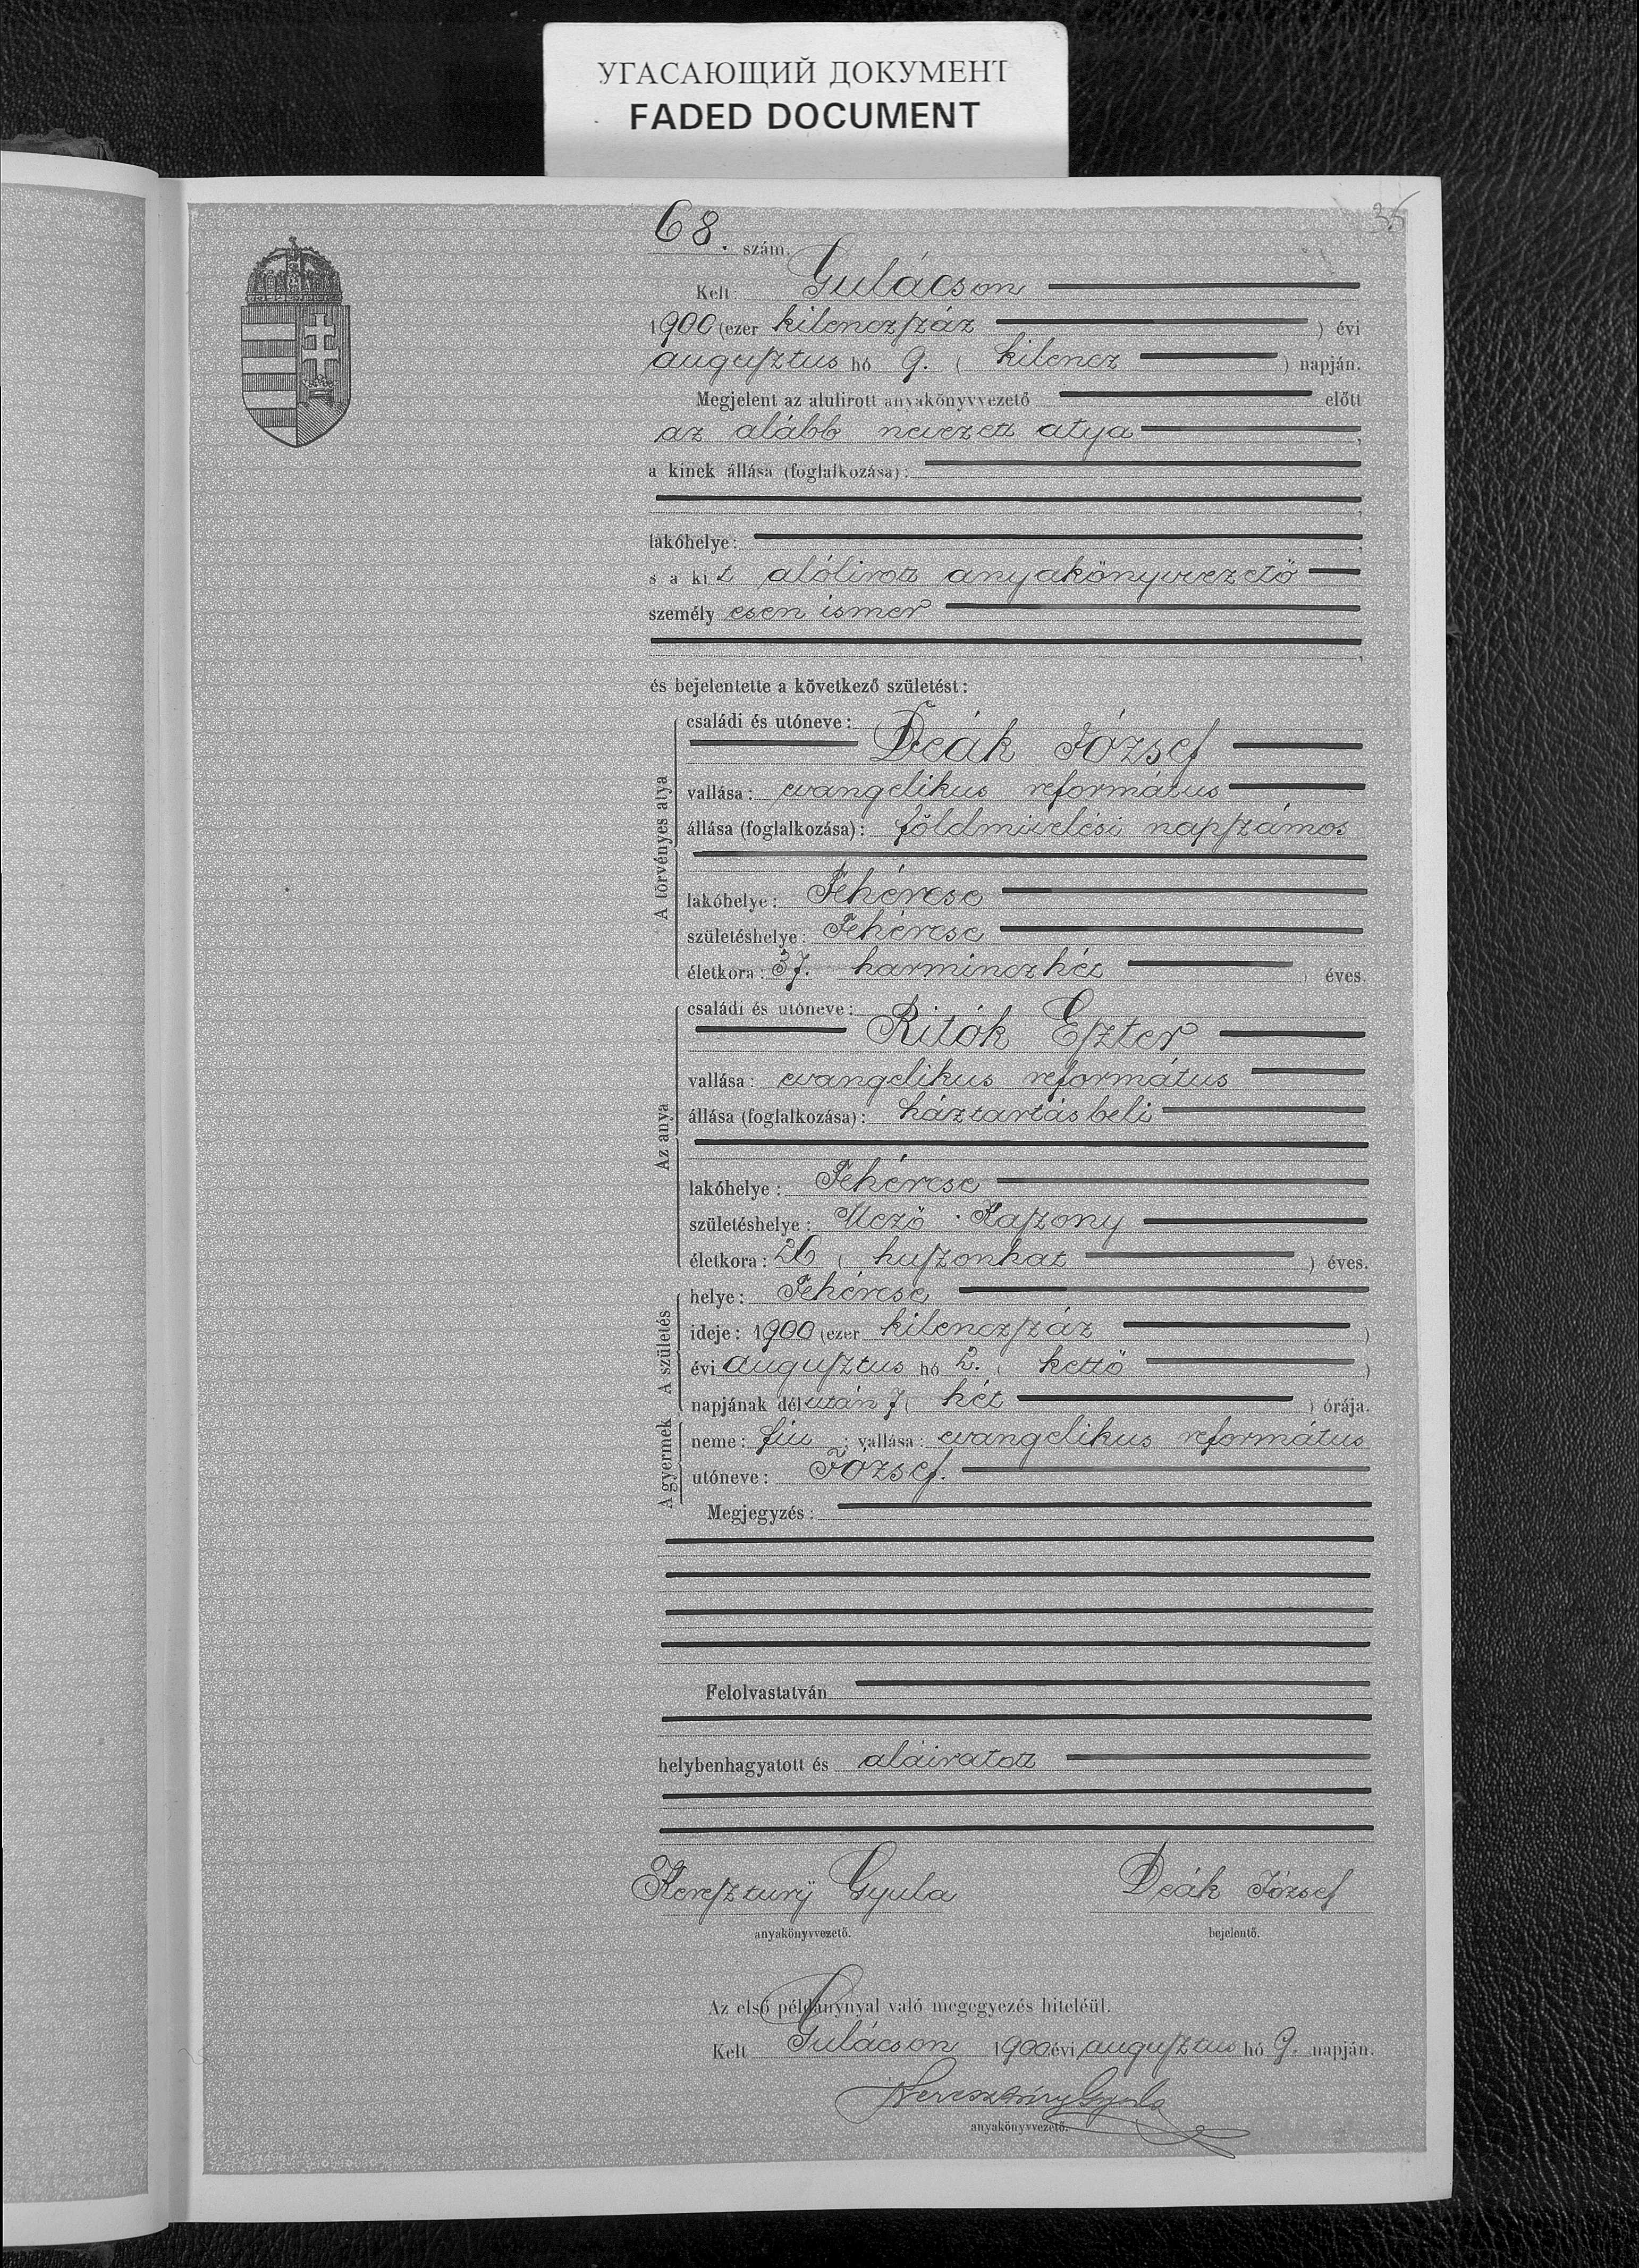 УГАСАЮЩИЙ ДОКУМЕНТ
FADED DOCUMENT
35
68. szám.
Kelt Gulácson
1900 (ezer kilenczszáz ) évi
augusztus hó 9. ( kilencz ) napján.
Megjelent az alulirott anyakönyvvezető előtt
az alább nevezett atya ,
a kinek állása (foglalkozása):
,
lakóhelye: ,
s a kit alólirott anyakönyvvezető
személyesen ismer
,
és bejelentette a következő születést:
A törvényes atya
családi és utóneve:
Deák József
vallása: evangelikus református
állása (foglalkozása): földmivelési napszámos
lakóhelye: Fehércse
születéshelye: Fehércse
életkora: 37. harminczhét ) éves.
Az anya
családi és utóneve:
Ritók Eszter
vallása: evangelikus református
állása (foglalkozása): háztartásbeli
lakóhelye: Fehércse
születéshelye: Mező-Kaszony
életkora: 26 ( huszonhat ) éves.
A születés
helye: Fehércse
ideje: 1900 (ezer kilenczszáz )
évi augusztus hó 2. ( kettő )
napjának délután 7 ( hét ) órája.
A gyermek
neme: fiú ; vallása: evangelikus református
utóneve: József.
Megjegyzés:
Felolvastatván
helybenhagyatott és aláiratott
Keresztury Gyula Deák József
anyakönyvvezető. bejelentő.
Az első példánynyal való megegyezés hiteléül.
Kelt Gulácson 1900 évi augusztus hó 9. napján.
Keresztúry Gyula
anyakönyvvezető.